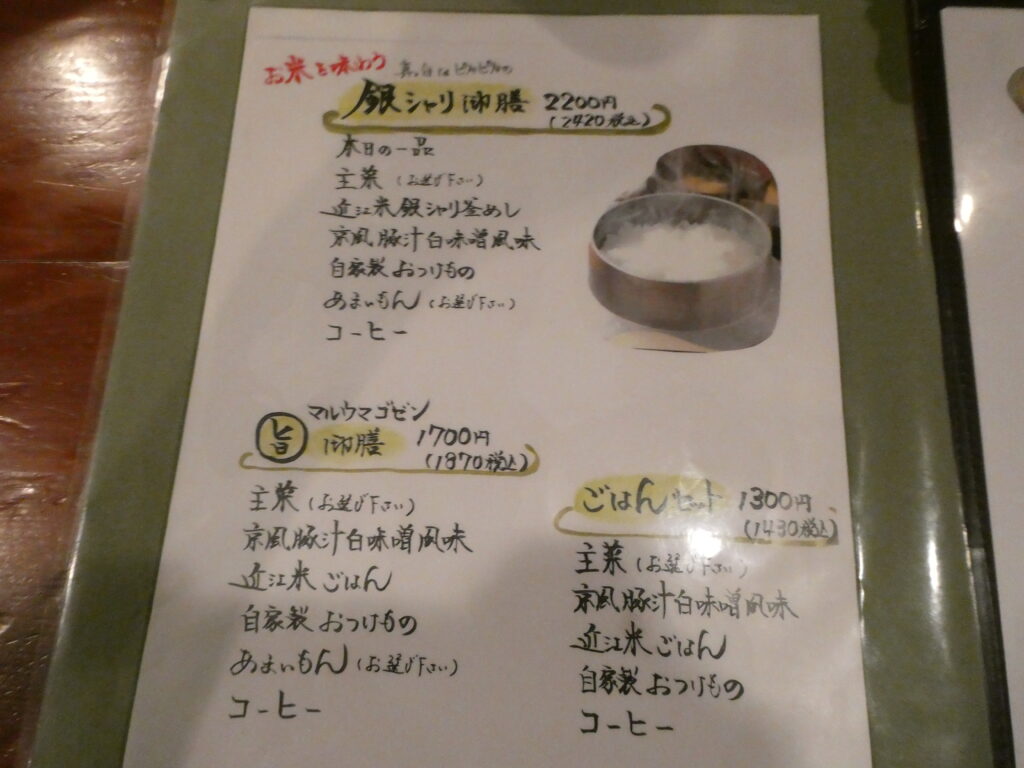 お米を味わう 真っ白なピカピカの
銀シャリ御膳 2200円
(2420税込)
本日の一品
主菜(お選び下さい)
近江米銀シャリ釜めし
京風豚汁白味噌風味
自家製おつけもの
あまいもん(お選び下さい)
コーヒー
マルウマゴゼン
旨 御膳 1700円
(1870税込)
主菜(お選び下さい)
京風豚汁白味噌風味
近江米ごはん
自家製おつけもの
あまいもん(お選び下さい)
コーヒー
ごはんセット 1300円
(1430税込)
主菜(お選び下さい)
京風豚汁白味噌風味
近江米ごはん
自家製おつけもの
コーヒー